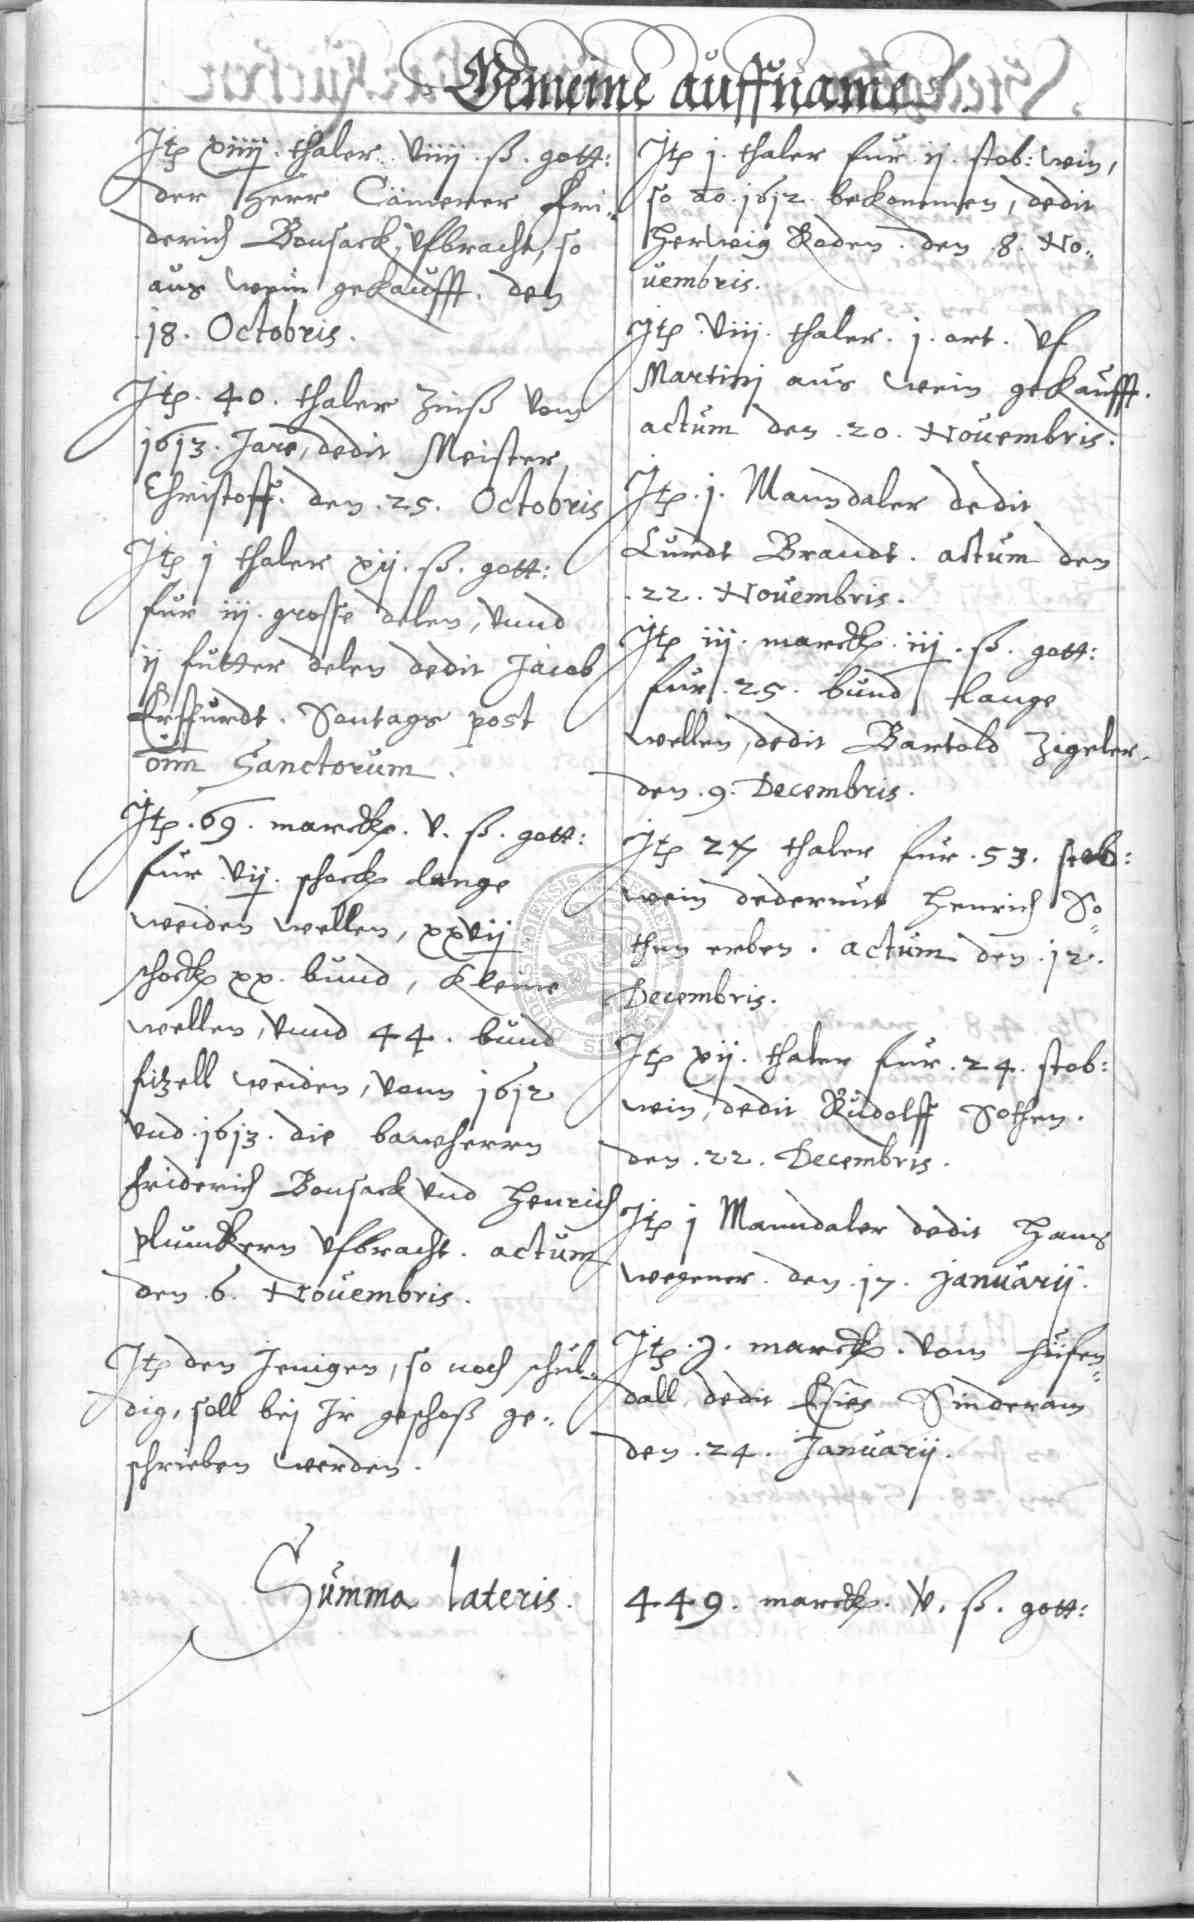 Gemeine auffname
Jtp xiiij. thaler. viiij. ß. gott:
der Herr Cämerer Fri¬
derich Bonsack, vfbracht, so
aus wein gekaufft. den
18. Octobris.
Jtp. 40. thaler Zinß vom
1613. Jare, dedit Meister
Christoff. den .25. Octobris
Jtp j thaler xij. ß. gott:
für iij. grosse delen, vnnd
ij futter delen dedit Jacob
Erffurdt. Sontags post
oim Sanctorum.
Jtp. 69. marck. v. ß. gott:
für vij. schock lange
weiden wellen, xxvij
schock xx. bund, kleine
wellen, vnnd 44. bund
fitzell weiden, vom 1612
vnd .1613. die bawherrn
Friderich Bonsack vnd Henrich
Plunckern vfbracht. actum
den .6. Nouembris.
Jtp den Jenigen, so noch schul¬
dig, soll bej Jr geschoß ge¬
schrieben werden.
Jtp j. thaler für ij. stob: win,
so ao. 1612. bekommen, dedit
Herwig Roden. den .8. No¬
uembris.
Jtp. viij. thaler. j. ort. vf
Martinj aus wein gekaufft.
actum den .20. Nouembris.
Jtp. j. Manndaler dedit
Curdt Brandt. actum den
.22. Nouembris.
Jtp iij. marck. iij. ß. gott:
für .25. bund lange
wellen, dedit Bartold Zigeler.
den .9. Decembris.
Jtp 27 thaler für .53. stob:
wein dederunt Henrich So¬
then erben. actum den .12.
Decembris.
Jtp xij. thaler für .24. stob:
win, dedit Rudolff Sothen.
den .22. Decembris.
Jtp j Manndaler dedit Hans
Wegener. den .17. Januarij.
Jtp. j. marck. vom Hüfen¬
dall, dedit Sinderam
den .24. Januarij.
Summa lateris. 449. marck. v. ß. gott: